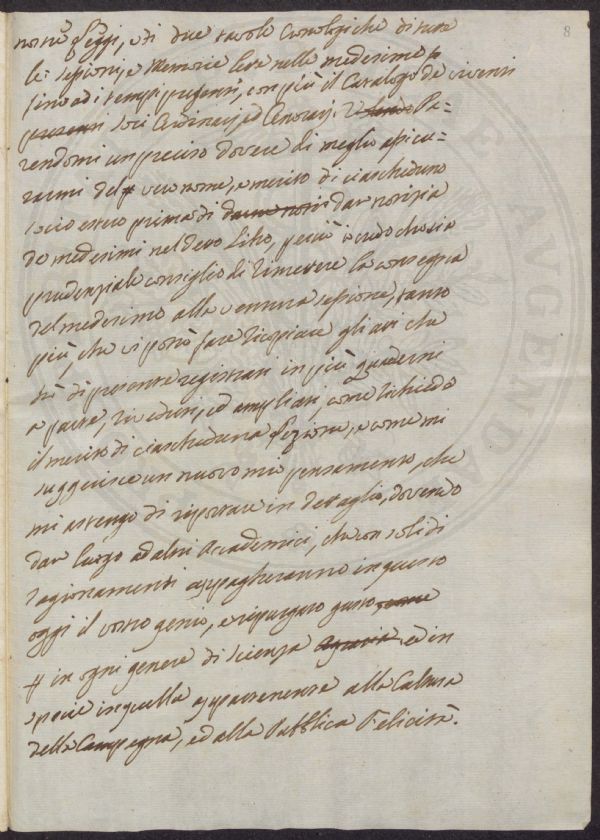 8
nostre Leggi, e di due tavole Cronologiche di tutte
le Sessioni, e Memorie lette nelle medesime
sino ad i tempi presenti, con più il Catalogo de viventi
presenti Soci Ordinarj, ed Onorarj. Pa-
rendomi un preciso dovere di meglio assicu-
rarmi del vero nome, e merito di ciascheduno
Socio estero prima di dar notizia
de medesimi nel detto Libro, perciò credo che sia
prudenziale consiglio di rimettere la consegna
del medesimo alla ventura sessione, tanto
più, che vi potrò fare ricopiare gli atti che
di presente registrati in più Quaderni
a parte, riveduti, ed ampliati, come richiede
il merito di ciascheduna Sezione, e come mi
suggerisce un nuovo mio pensamento, che
mi astengo di riportare in dettaglio, dovendo
dar luogo ad altri Accademici, che con solidi
ragionamenti appagheranno in questo
oggi il vostro genio, e ripurgato gusto come
in ogni genere di scienza ed in
specie in quella appartenente alla Coltura
della Campagna, ed alla Pubblica Felicità.
AUGENDA